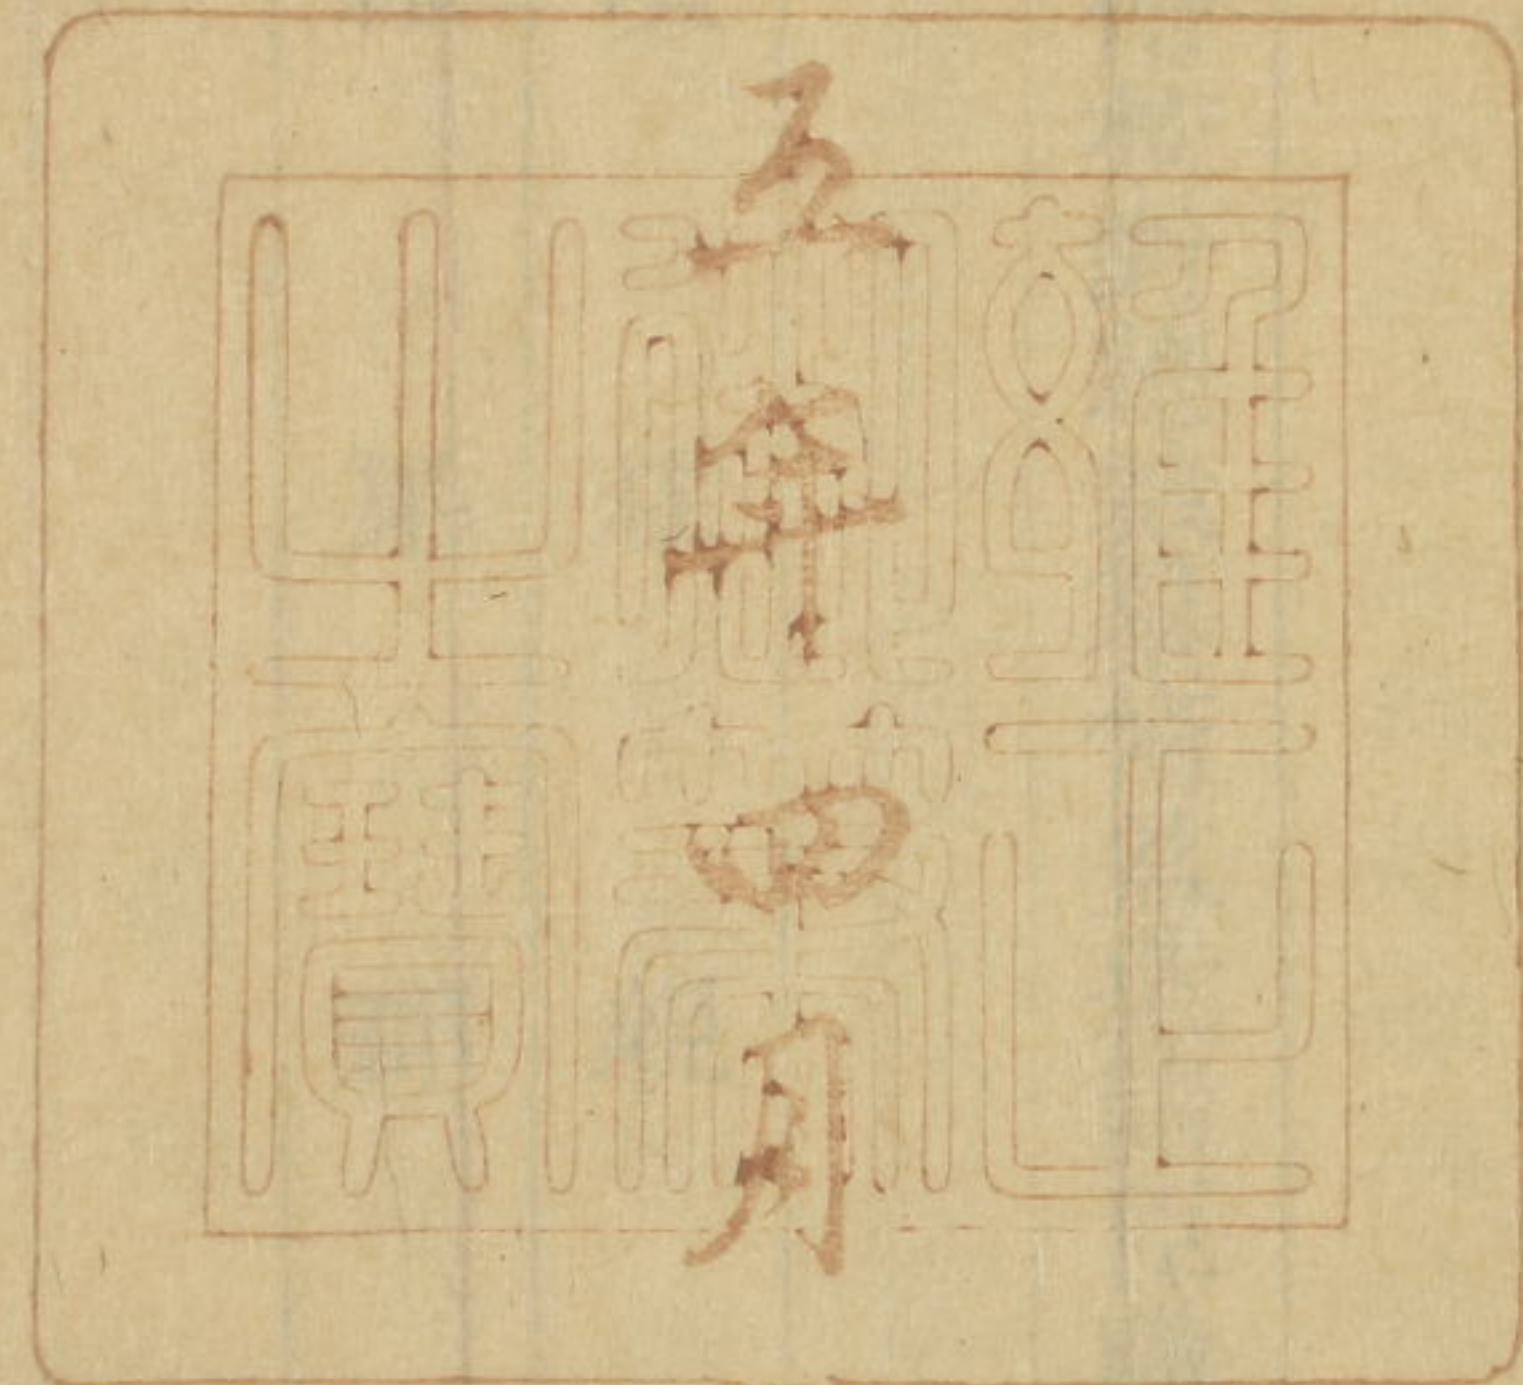 五年四月
雍正
之寶